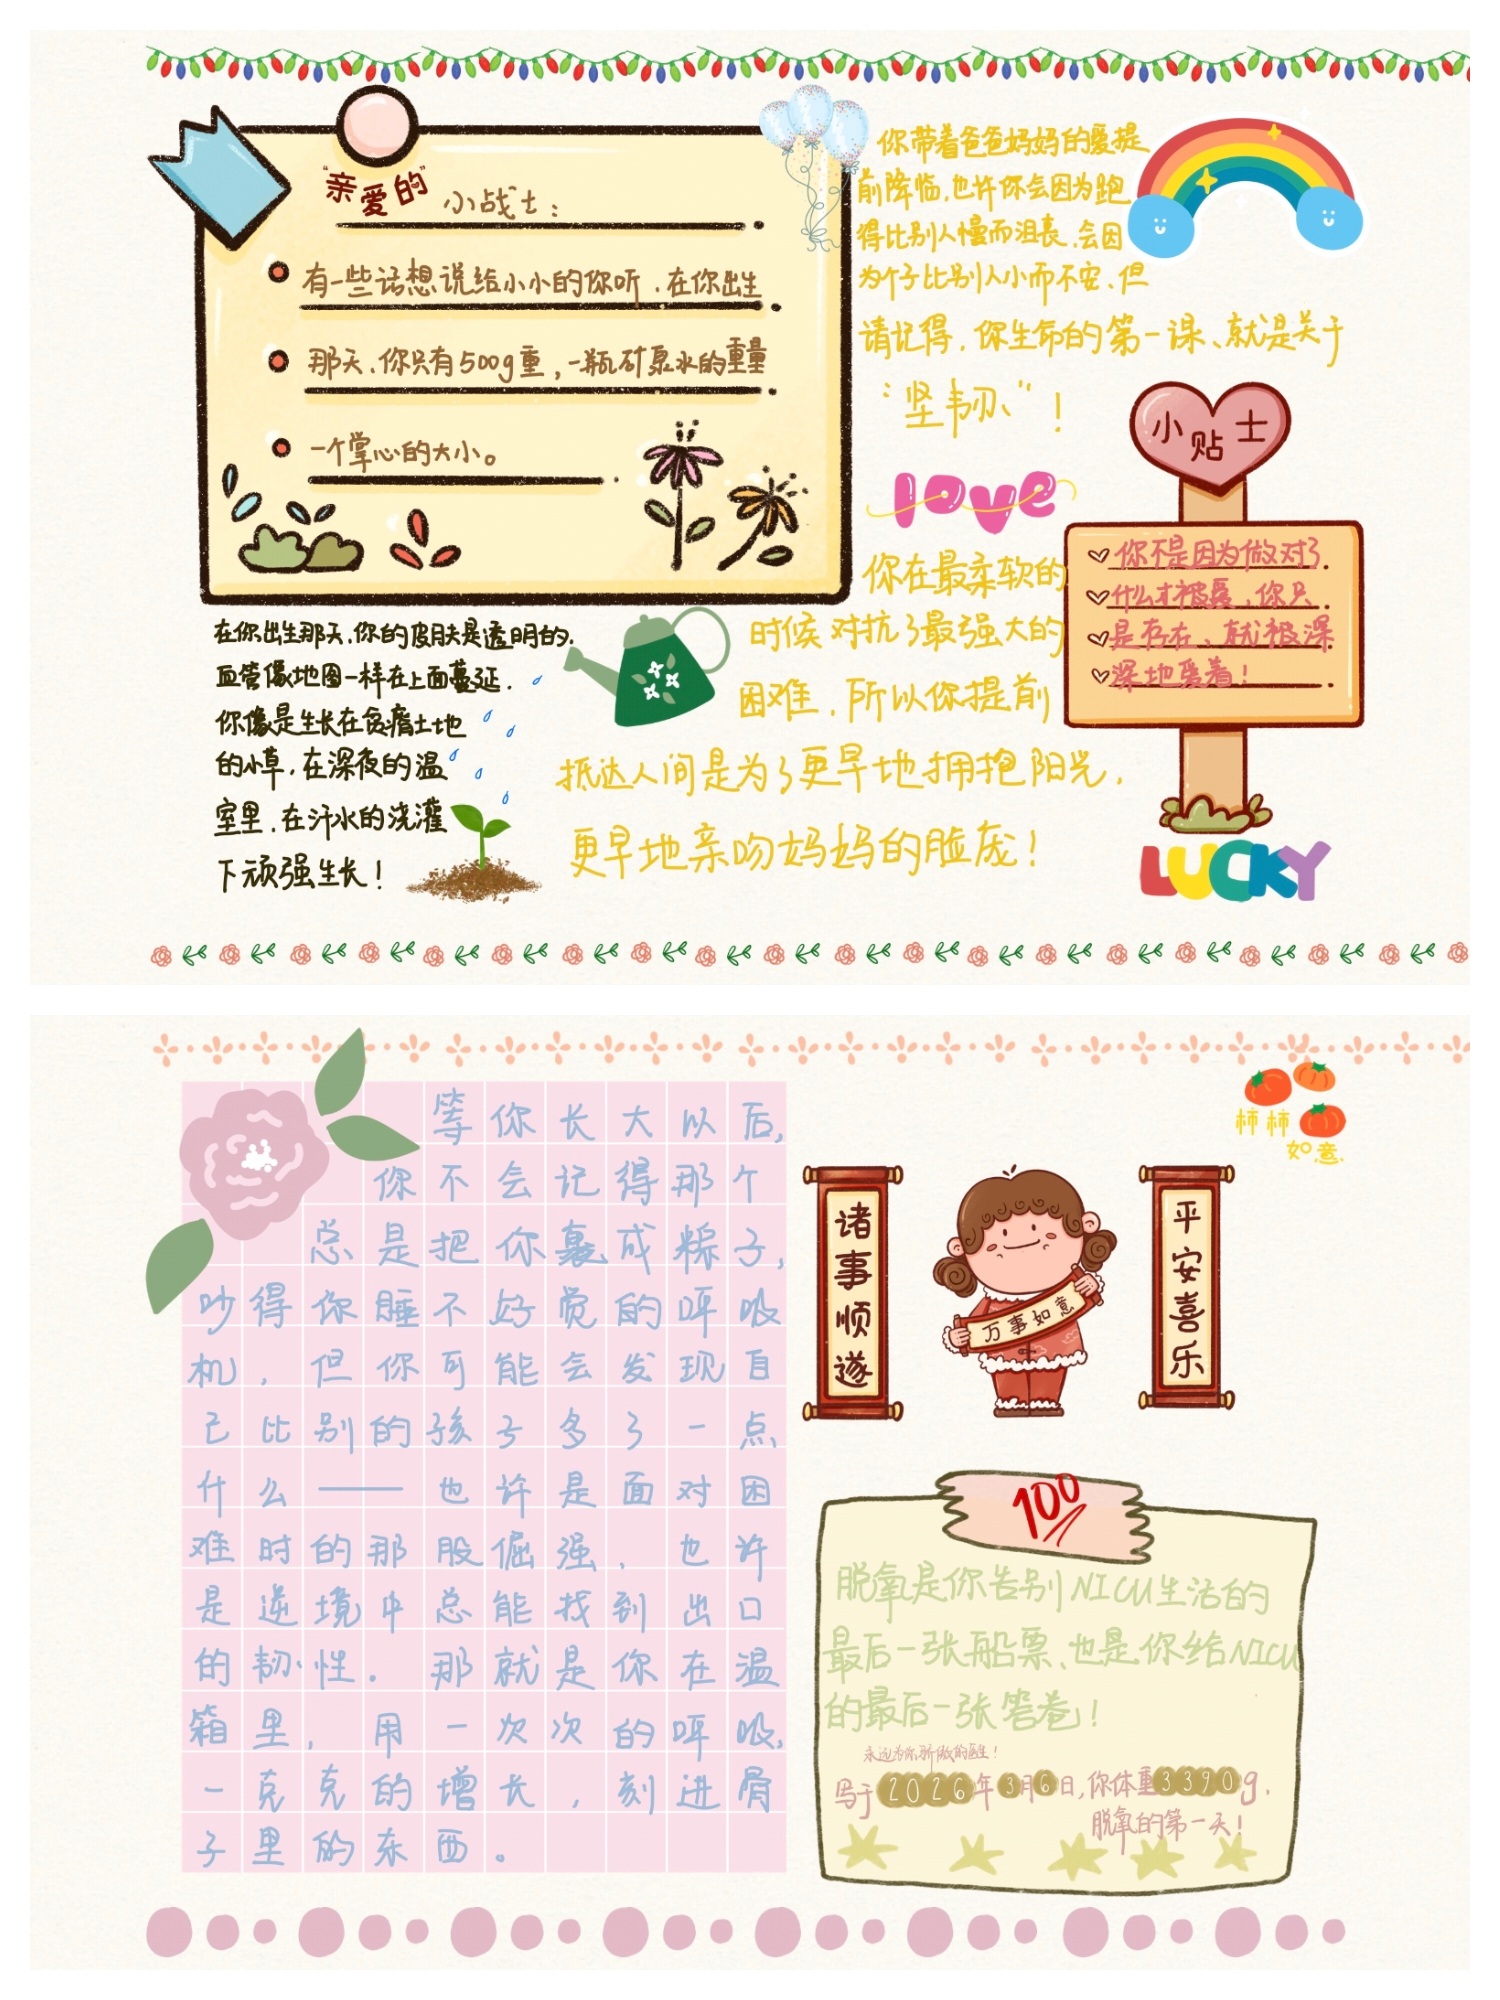 “亲爱的”小战士：
有一些话想说给小小的你听，在你出生
那天、你只有500g重，一瓶矿泉水的重量
一个掌心的大小。
在你出生那天，你的皮肤是透明的，
血管像地图一样在上面蔓延．
你像是生长在贫瘠土地
的小草，在深夜的温
室里，在汗水的浇灌
下顽强生长！
你带着爸爸妈妈的爱提
前降临，也许你会因为跑
得比别人慢而沮丧，会因
为个子比别人小而不安、但
请记得，你生命的第一课、就是关于
“坚韧”！
love
你在最柔软的
时候对抗了最强大的
困难，所以你提前
抵达人间是为了更早地拥抱阳光，
更早地亲吻妈妈的脸庞！
小贴士
你不是因为做对了
什么才被爱，你只
是存在、就被深
深地爱着！
LUCKY
等你长大以后，
你不会记得那个
总是把你裹成粽子，
吵得你睡不好觉的呼吸
机，但你可能会发现自
己比别的孩子多了一点
什么——也许是面对困
难时的那股倔强，也许
是逆境中总能找到出口
的韧性．那就是你在温
箱里，用一次次的呼吸，
一克克的增长，刻进骨
子里的东西。
柿柿
如意
诸事顺遂
万事如意
平安喜乐
100
脱氧是你告别NICU生活的
最后一张船票、也是你给NICU
的最后一张答卷！
永远为你骄傲的医生！
写于2026年3月6日，你体重3390g．
脱氧的第一天！